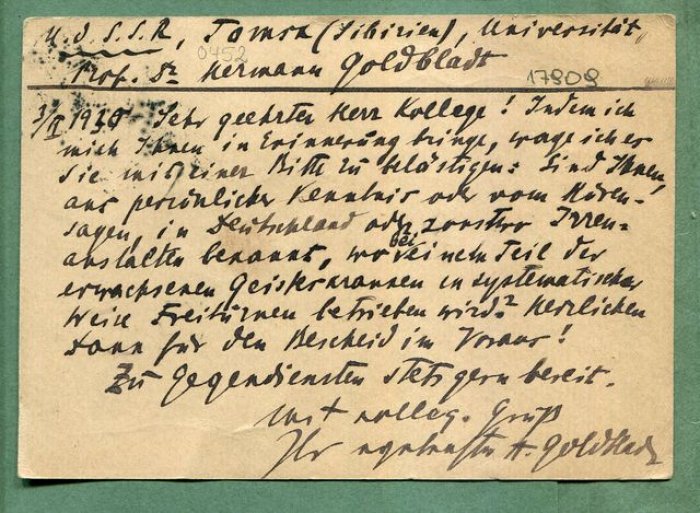 U.d.S.S.R, Tomsk (Sibirien), Universität,
Prof. Dr Hermann Goldbladt
0452
17909
3/II 1930 Sehr geehrter Herr Kollege! Indem ich
mich Ihnen in Erinnerung bringe, wage ich es
Sie mit einer Bitte zu belästigen: Sind Ihnen,
aus persönlicher Kenntnis oder vom Hören-
sagen, in Deutschland oder sonstwo Irren-
anstalten bekannt, wo bei einem Teil der
erwachsenen Geisteskranken in systematischer
Weise Freiturnen betrieben wird? Herzlichen
Dank für den Bescheid im Voraus!
Zu Gegendiensten stets gern bereit.
mit kolleg. Gruß
Ihr ergebenster H. Goldbladt